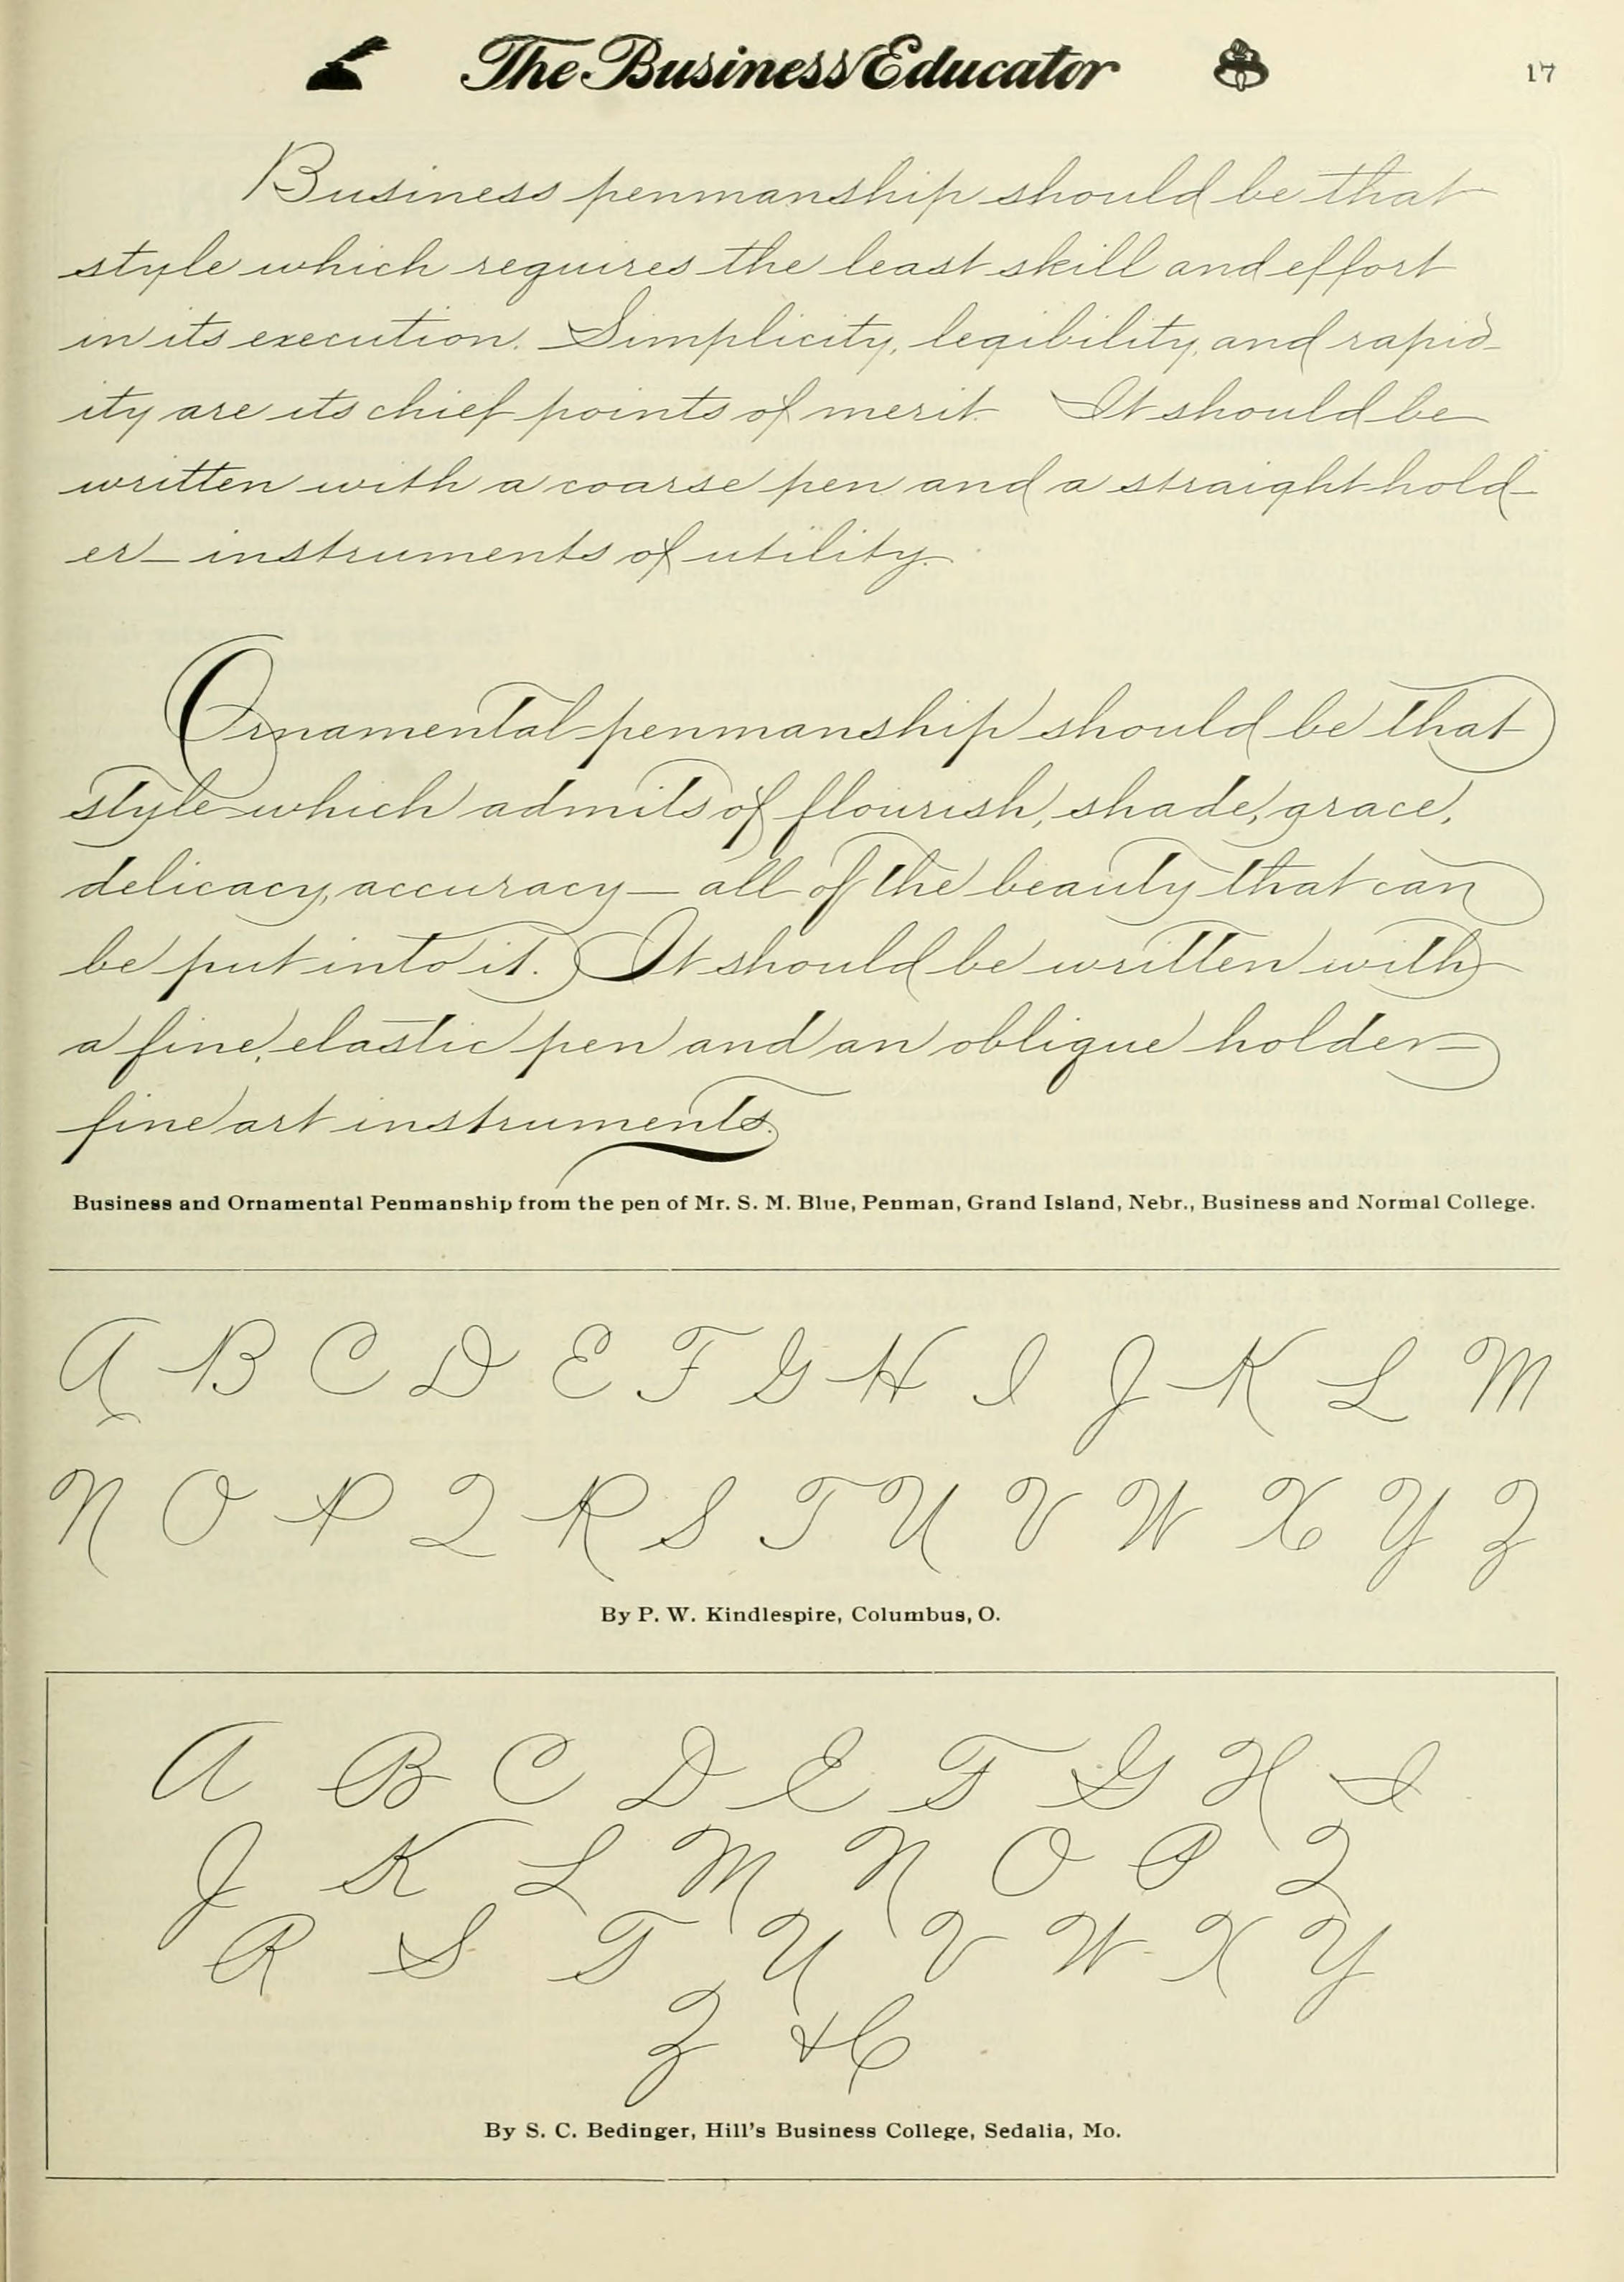 The Business Educator 17
Business penmanship should be that
style which requires the least skill and effort
in its execution. Simplicity, legibility, and rapid-
ity are its chief points of merit. It should be
written with a coarse pen and a straight hold-
er — instruments of utility.
Ornamental penmanship should be that
style which admits of flourish, shade, grace,
delicacy, accuracy — all of the beauty that can
be put into it. It should be written with
a fine, elastic pen and an oblique holder —
fine art instruments.
Business and Ornamental Penmanship from the pen of Mr. S. M. Blue, Penman, Grand Island, Nebr., Business and Normal College.
A B C D E F G H I J K L M
N O P Q R S T U V W X Y Z
By P. W. Kindlespire, Columbus, O.
A B C D E F G H I
J K L M N O P Q
R S T U V W X Y
Z & C
By S. C. Bedinger, Hill's Business College, Sedalia, Mo.